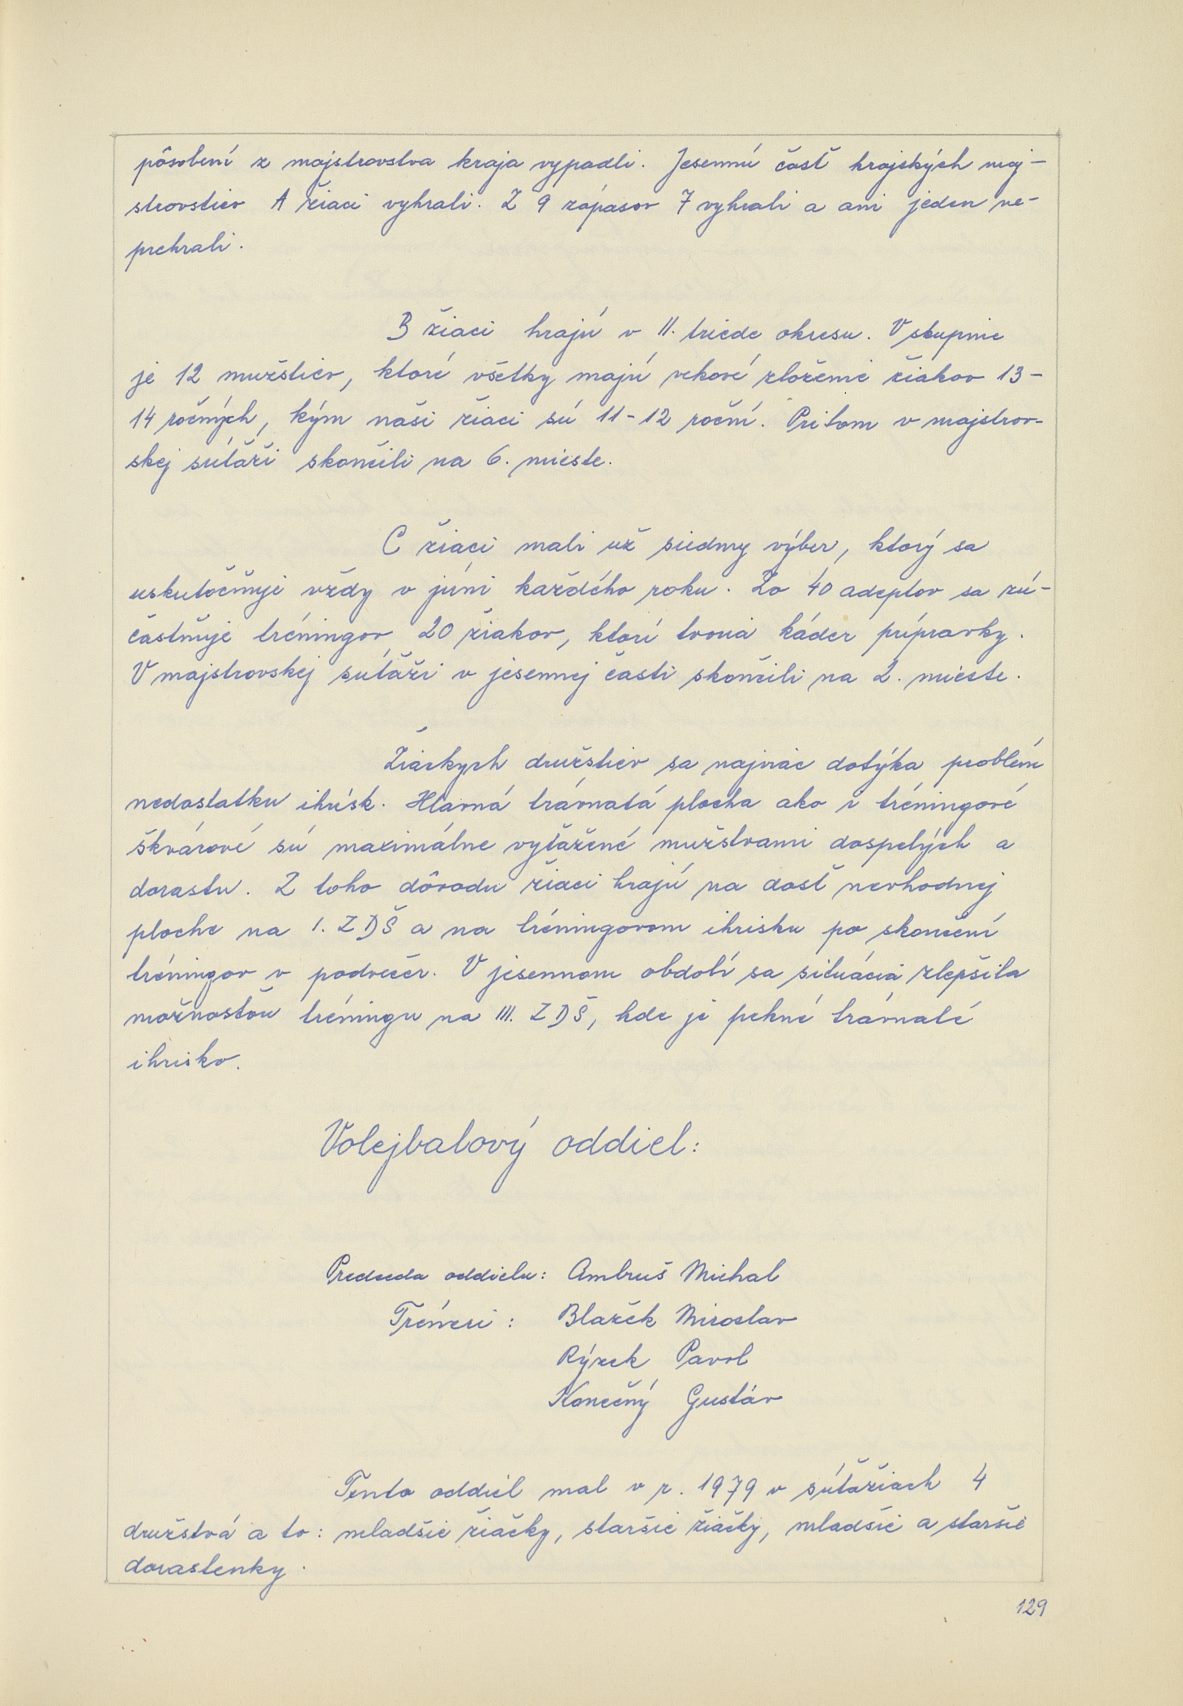 pôsobení z majstrovstva kraja vypadli. Jesennú časť krajských maj-
strovstiev A žiaci vyhrali. Z 9 zápasov 7 vyhrali a ani jeden ne-
prehrali.
B žiaci hrajú v II. triede okresu. V skupine
je 12 mužstiev, ktoré všetky majú vekové zloženie žiakov 13-
14 ročných, kým naši žiaci sú 11-12 roční. Pritom v majstrov-
skej súťaži skončili na 6. mieste.
C žiaci mali už siedmy výber, ktorý sa
uskutočňuje vždy v júni každého roku. Zo 40 adeptov sa zú-
častňuje tréningov 20 žiakov, ktorí tvoria káder prípravky.
V majstrovskej súťaži v jesennej časti skončili na 2. mieste.
Žiackych družstiev sa najviac dotýka problém
nedostatku ihrísk. Hlavná trávnatá plocha ako i tréningové
škvárové sú maximálne vyťažené mužstvami dospelých a
dorastu. Z toho dôvodu žiaci hrajú na dosť nevhodnej
ploche na I. ZDŠ a na tréningovom ihrisku po skončení
tréningov v podvečer. V jesennom období sa situácia zlepšila
možnosťou tréningu na III. ZDŠ, kde je pekné trávnaté
ihrisko.
Volejbalový oddiel:
Predseda oddielu: Ambruš Michal
Tréneri: Blažek Miroslav
Rýzek Pavol
Konečný Gustáv
Tento oddiel mal v r. 1979 v súťažiach 4
družstvá a to: mladšie žiačky, staršie žiačky, mladšie a staršie
dorastenky.
129